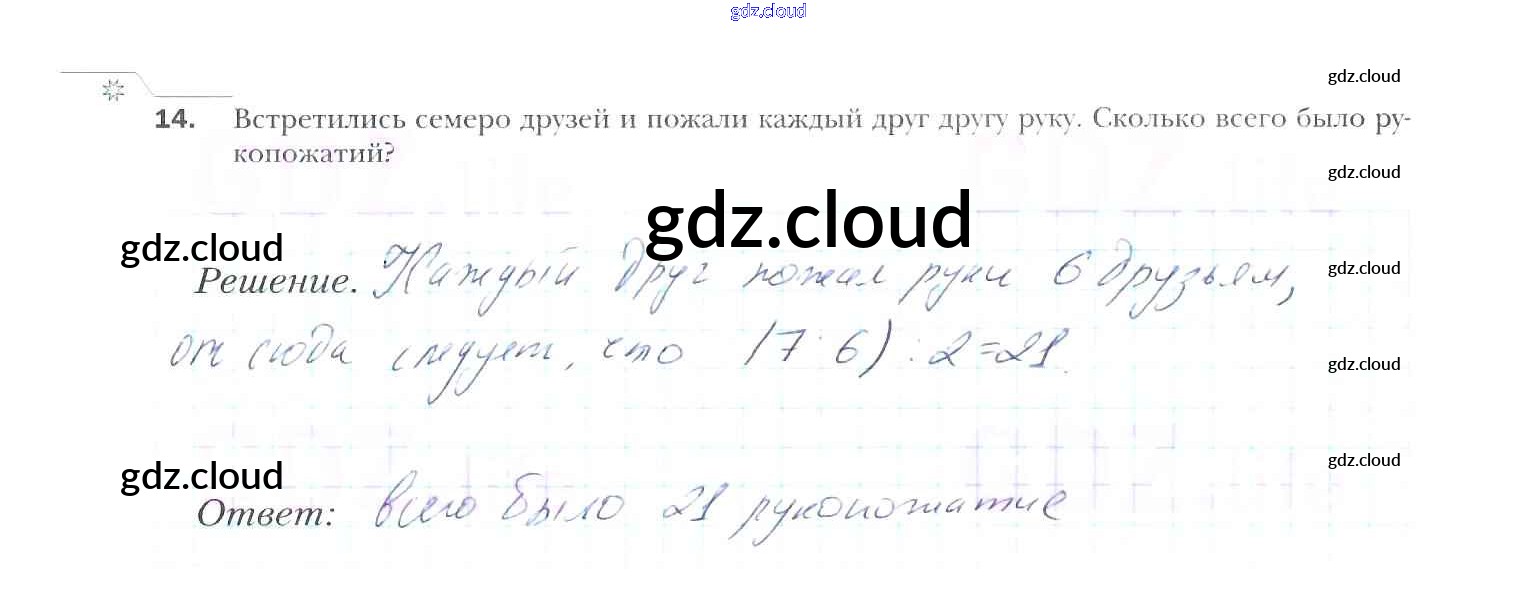 gdz.cloud
gdz.cloud
14. Встретились семеро друзей и пожали каждый друг другу руку. Сколько всего было ру-
копожатий?
gdz.cloud
gdz.cloud
gdz.cloud
Решение. Каждый друг пожал руки 6 друзьям,
gdz.cloud
от сюда следует, что (7·6):2=21.
gdz.cloud
gdz.cloud
gdz.cloud
Ответ: всего было 21 рукопожатие